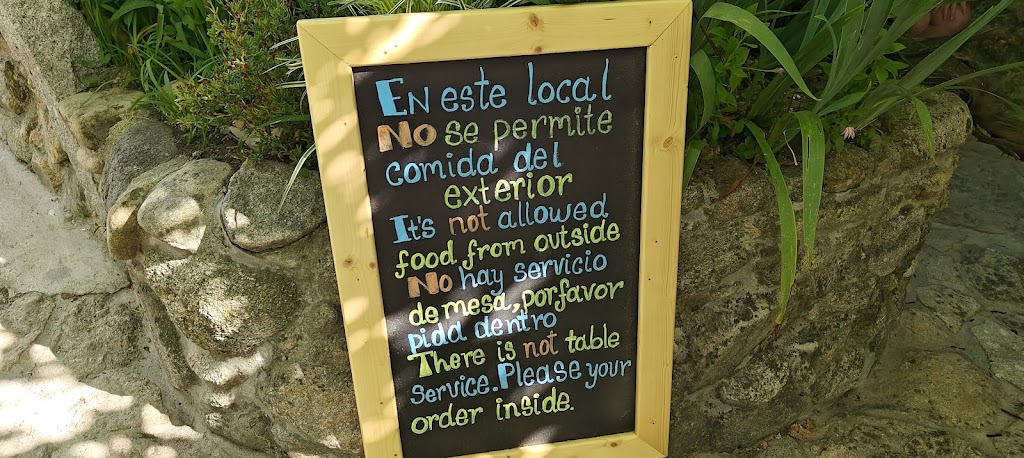 En este local
No se permite
comida del
exterior
It's not allowed
food from outside
No hay servicio
de mesa, por favor
pida dentro
There is not table
service. Please your
order inside.